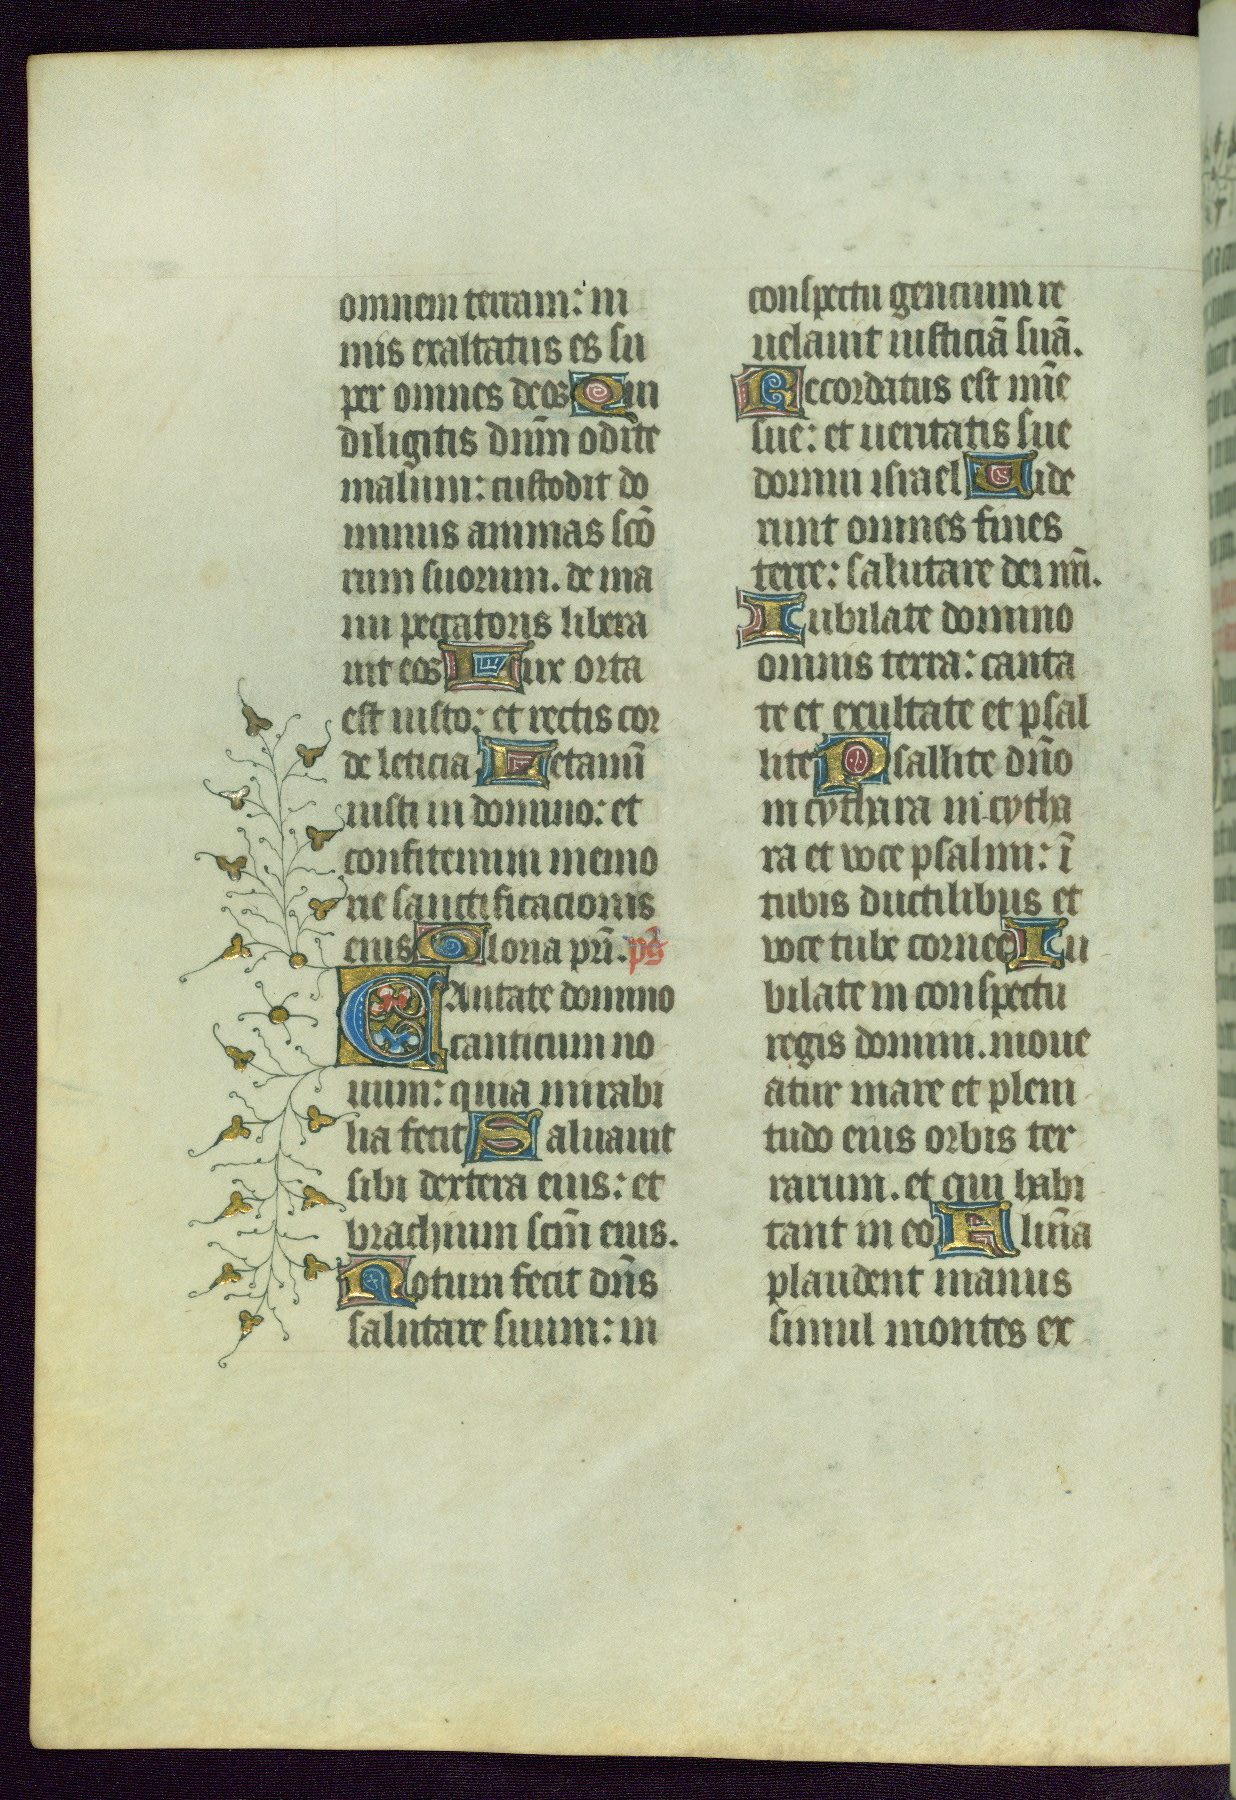 omnem terram: ni
mis exaltatus es su
per omnes deos Qui
diligitis dnm̄ odite
malum: custodit do
minus animas scō
rum suorum. de ma
nu peccatoris libera
uit eos Lux orta
est iusto: et rectis cor
de leticia Letamī
iusti in domino: et
confitemini memo
rie sanctificacionis
eius Gloria pr̄i. ps̄
Cantate domino
canticum no
uum: quia mirabi
lia fecit Saluauit
sibi dextera eius: et
brachium scm̄ eius.
Notum fecit dn̄s
salutare suum: in
conspectu gencium re
uelauit iusticiā suā.
Recordatus est mīe
sue: et ueritatis sue
domui israel Uide
runt omnes fines
terre: salutare dei nr̄i.
Iubilate domino
omnis terra: canta
te et exultate et psal
lite Psallite dn̄o
in cythara in cytha
ra et voce psalmi: ī
tubis ductilibus et
voce tube cornee Iu
bilate in conspectu
regis domini. moue
atur mare et pleni
tudo eius orbis ter
rarum. et qui habi
tant in eo Flūīa
plaudent manus
simul montes ex